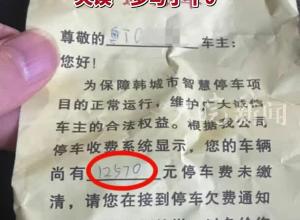 尊敬的 车主:
您好!
为保障韩城市智慧停车项
目的正常运行,维护广大
车主的合法权益。根据我公司
停车收费系统显示,您的车辆
尚有 12570 元停车费未缴
清,请您在接到停车欠费通知